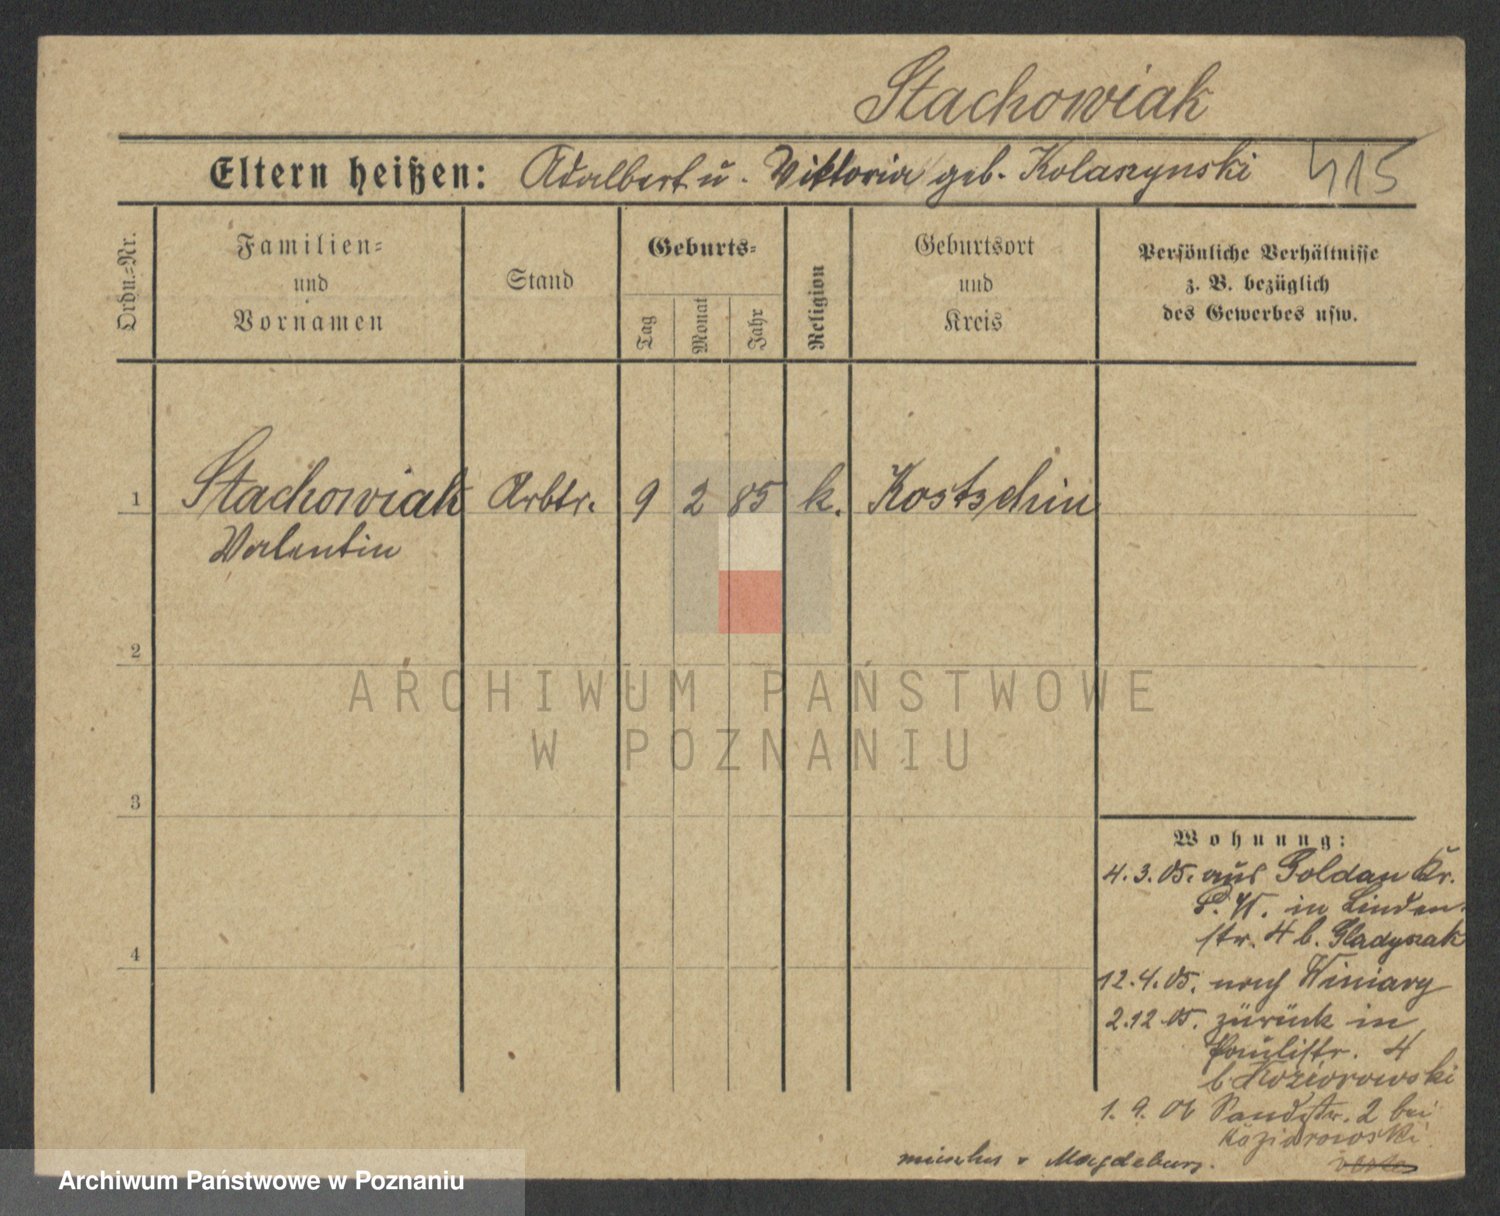 Stachowiak
Eltern heißen: Adalbert u. Viktoria geb. Kolaszynski 415
Ordn.=Nr.
Familien=
und
Vornamen
Stand
Geburts=
Tag
Monat
Jahr
Religion
Geburtsort
und
Kreis
Persönliche Verhältnisse
z. B. bezüglich
des Gewerbes usw.
1 Stachowiak Arbtr. 9 2 85 k. Kostschin
Valentin
2
ARCHIWUM PAŃSTWOWE
W POZNANIU
3
Wohnung:
4.3.05. aus Goldau Kr.
P. W. in Linden-
str. 4 b. Gladyszak
4
12.4.05. nach Winiary
2.12.05. zurück in
Paulistr. 4
b Koziorowski
1.9.06 Sandstr. 2 bei
Koziorowski
Magdeburg.
Archiwum Państwowe w Poznaniu